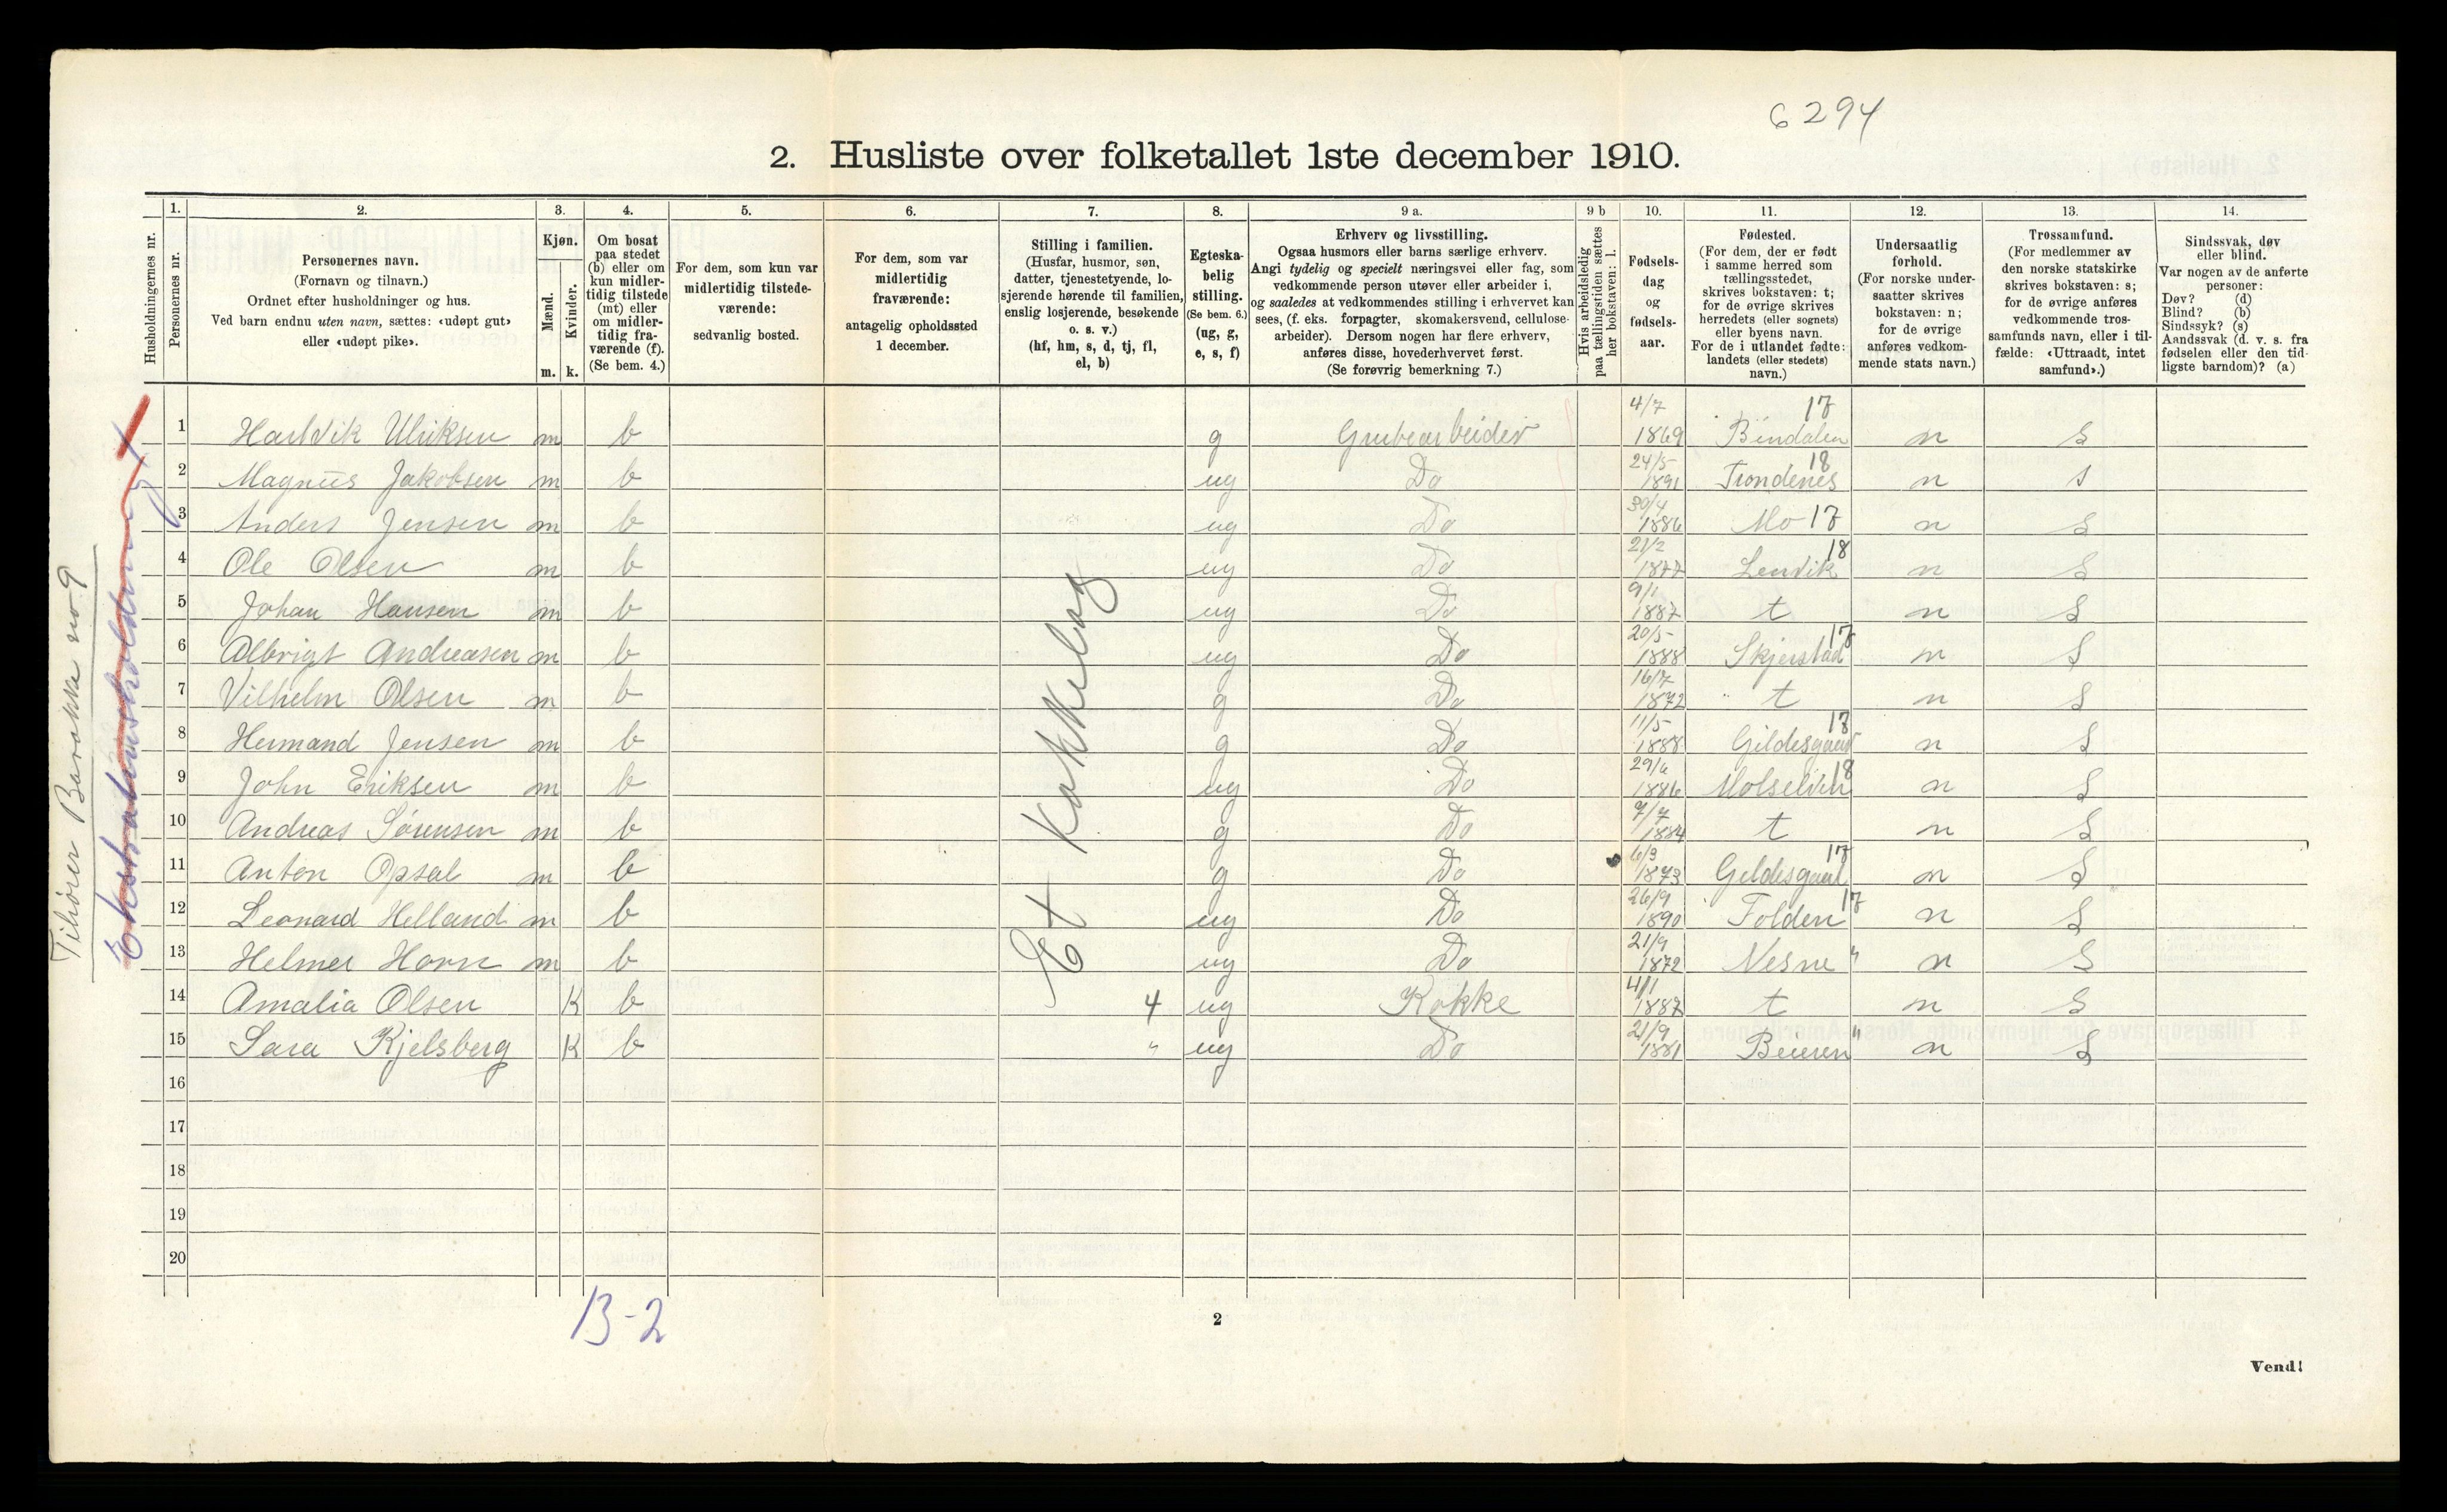 6294
2. Husliste over folketallet 1ste december 1910.
Husholdningernes nr.
1.
Personernes nr.
2.
Personernes navn.
(Fornavn og tilnavn.)
Ordnet efter husholdninger og hus.
Ved barn endnu uten navn, sættes: «udøpt gut»
eller «udøpt pike».
3.
Kjøn.
Mænd.
Kvinder.
m. k.
4.
Om bosat
paa stedet
(b) eller om
kun midler-
tidig tilstede
(mt) eller
om midler-
tidig fra-
værende (f).
(Se bem. 4.)
5.
For dem, som kun var
midlertidig tilstede-
værende:
sedvanlig bosted.
6.
For dem, som var
midlertidig
fraværende:
antagelig opholdssted
1 december.
7.
Stilling i familien.
(Husfar, husmor, søn,
datter, tjenestetyende, lo-
sjerende hørende til familien,
enslig losjerende, besøkende
o. s. v.)
(hf, hm, s, d, tj, fl,
el, b)
8.
Egteska-
belig
stilling.
(Se bem. 6.)
(ug, g,
e, s, f)
9 a.
Erhverv og livsstilling.
Ogsaa husmors eller barns særlige erhverv.
Angi tydelig og specielt næringsvei eller fag, som
vedkommende person utøver eller arbeider i,
og saaledes at vedkommendes stilling i erhvervet kan
sees, (f. eks. forpagter, skomakersvend, cellulose-
arbeider). Dersom nogen har flere erhverv,
anføres disse, hovederhvervet først.
(Se forøvrig bemerkning 7.)
9 b
Hvis arbeidsledig
paa tællingstiden sættes
her bokstaven: l.
10.
Fødsels-
dag
og
fødsels-
aar.
11.
Fødested.
(For dem, der er født
i samme herred som
tællingsstedet,
skrives bokstaven: t;
for de øvrige skrives
herredets (eller sognets)
eller byens navn.
For de i utlandet fødte:
landets (eller stedets)
navn.)
12.
Undersaatlig
forhold.
(For norske under-
saatter skrives
bokstaven: n;
for de øvrige
anføres vedkom-
mende stats navn.)
13.
Trossamfund.
(For medlemmer av
den norske statskirke
skrives bokstaven: s;
for de øvrige anføres
vedkommende tros-
samfunds navn, eller i til-
fælde: «Uttraadt, intet
samfund».)
14.
Sindssvak, døv
eller blind.
Var nogen av de anførte
personer:
Døv? (d)
Blind? (b)
Sindssyk? (s)
Aandssvak (d. v. s. fra
fødselen eller den tid-
ligste barndom)? (a)
Tilhører Barakke no 9
Ekstrahusholdning
Et Kokkelag
1 Hartvik Ulriksen m b g Grubearbeider 4/7 1869 Bindalen 17 n S
2 Magnus Jakobsen m b ug Do 24/5 1891 Trondenes 18 n S
3 Anders Jensen m b ug Do 30/4 1886 Mo 17 n S
4 Ole Olsen m b ug Do 21/2 1877 Lenvik 18 n S
5 Johan Hansen m b ug Do 9/1 1887 t n S
6 Albrigt Andreasen m b ug Do 20/5 1888 Skjerstad 17 n S
7 Vilhelm Olsen m b g Do 16/7 1872 t n S
8 Hermand Jensen m b g Do 11/5 1888 Gildesgaard 17 n S
9 John Eriksen m b ug Do 29/6 1886 18 n S
10 Andreas Sørensen m b g Do 7/7 1884 t n S
11 Anton Opsal m b g Do 6/3 1873 Geldesgaal 17 n S
12 Leonard Helland m b ug Do 26/9 1890 Folden 17 n S
13 Helmer Horn m b ug Do 21/9 1872 Nesne " n S
14 Amalia Olsen K b 4 ug Kokke 4/1 1887 t n S
15 Sara Kjelsberg K b " ug Do 21/9 1881 Beieren " n S
16
17
18
19
20
13-2
2
Vend!